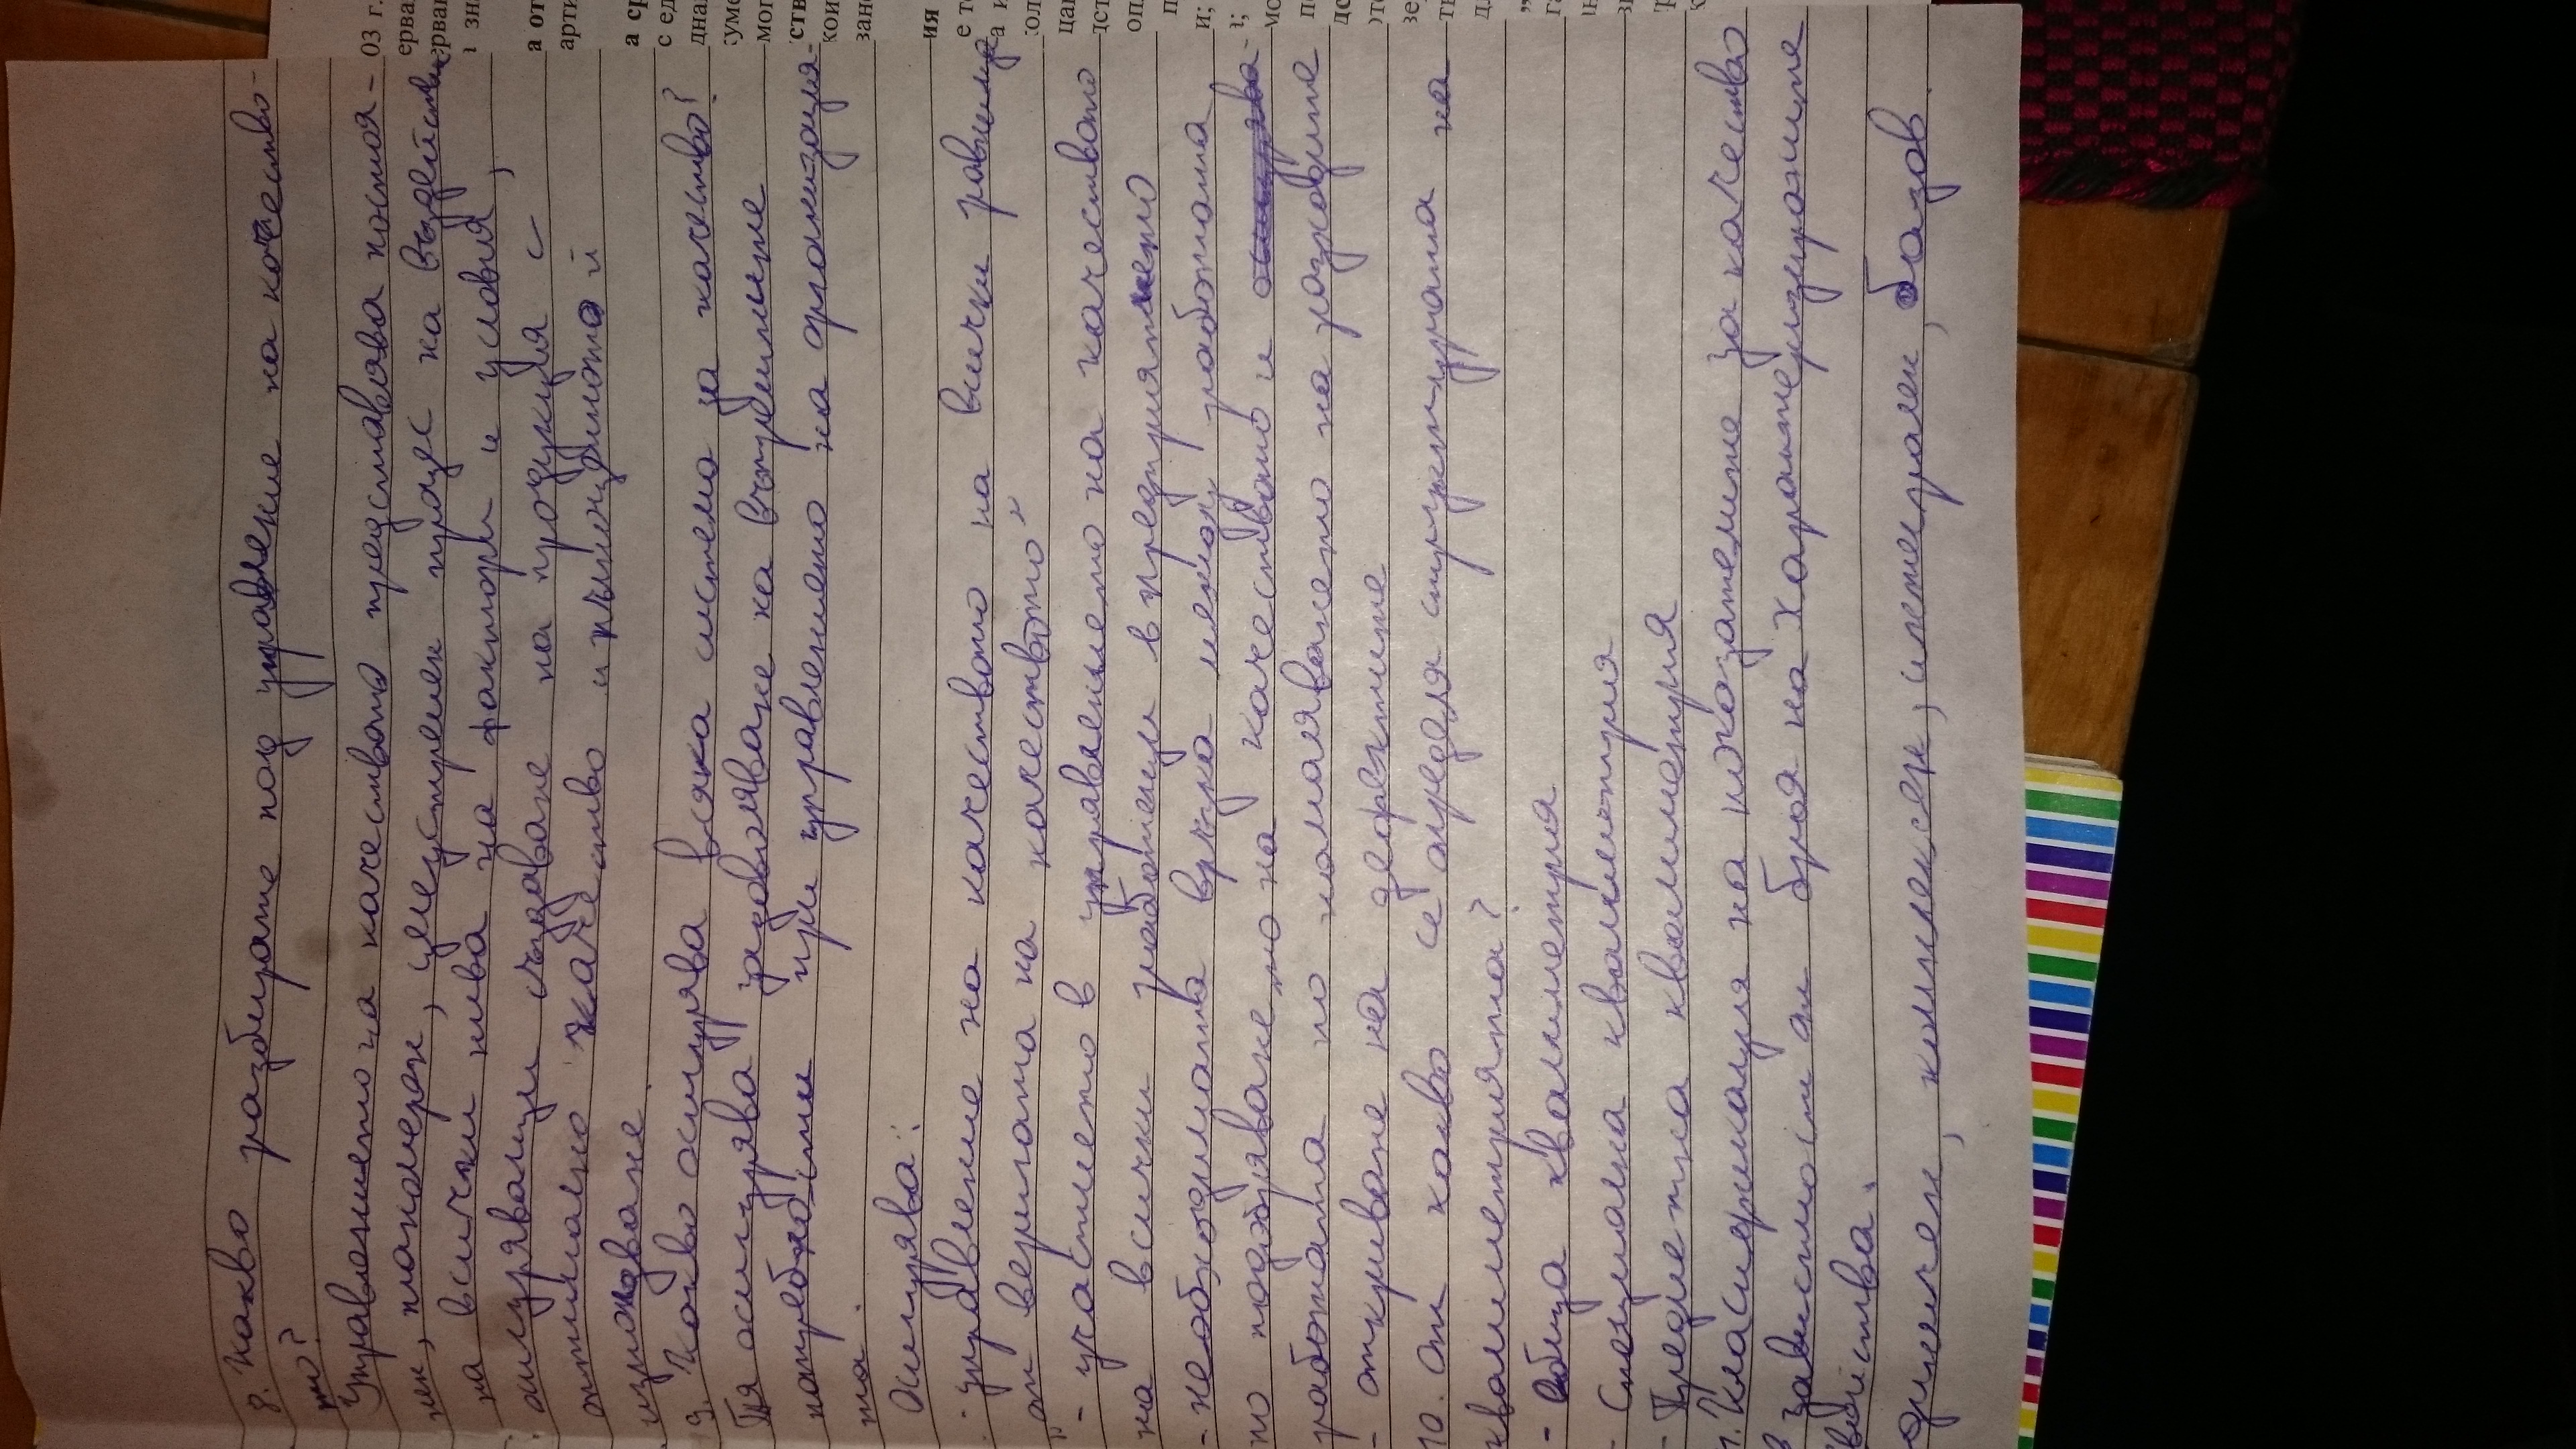 8. Какво разбирате под управление на качество-
то?
Управлението на качеството представлява постоя-
нен, планомерен, целеустремен процес на въздействие
на всички нива на фактори и условия,
осигуряващи създаване на продукция с
оптимално качество и пълноценното й
използване.
9. Какво осигурява всяка система за качество?
Тя осигурява задоволяване на вътрешните
потребности при управлението на организация-
та.
Осигурява:
- управление на качеството на всички равнища
"от веригата на качеството"
- участието в управлението на качеството
на всички работещи в предприятието
- необходимата връзка между работата
по подобряването на качеството и осигурява-
работата по намаляването на разходите
- откриване на дефектите
10. От какво се определя структурата на
квалиметрията?
- Обща квалиметрия
- Специална квалиметрия
- Предметна квалиметрия
1. Класификация на показателите за качество
в зависимост от броя на характеризираните
войства.
диничен, комплексен, интегрален, базов.
03 г.
ерва
ерван
зн
а от
арти
а ср
с ед
дна
куме
мог
ств
кои
зан
ия
е т
а и
кол
цан
оп
п
и;